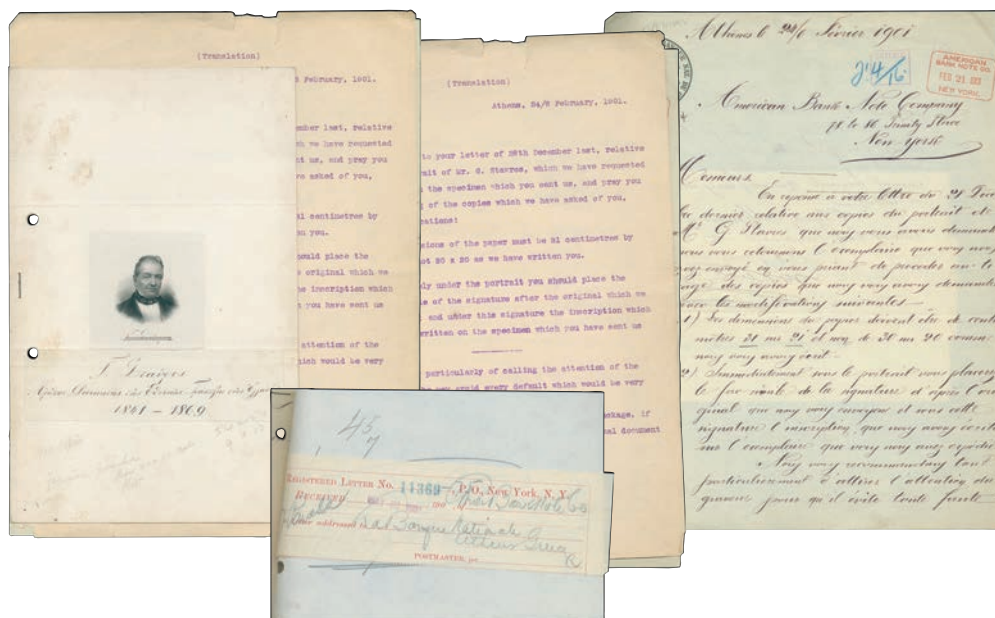 (Translation)
February, 1901.
mber last, relative
h we have requested
nt us, and pray you
ve asked of you,
21 centimetres by
en you.
hould place the
original which we
he inscription which
you have sent us
attention of the
hich would be very
Γ. Σταύρος
1841 - 1869
(Translation)
Athens, 24/8 February, 1901.
to your letter of 28th December last, relative
ait of Mr. G. Stavros, which we have requested
the specimen which you sent us, and pray you
g of the copies which we have asked of you,
cations:
sions of the paper must be 21 centimetres by
ot 30 x 20 as we have written you.
ly under the portrait you should place the
le of the signature after the original which we
and under this signature the inscription which
written on the specimen which you have sent us
particularly of calling the attention of the
avoid every default which would be very
ckage, if
al document
Février 1901
AMERICAN
BANK NOTE CO.
FEB 21 1901
NEW YORK
American Bank Note Company
78 to 86 Trinity Place
New-York
Messieurs
En réponse à votre lettre du 28 Décem
bre dernier relative aux copies du portrait de
Mr G. Stavros que nous vous avons demandé
nous vous retournons l'exemplaire que vous nous
avez envoyé en vous priant de procéder au ti-
rage des copies que nous vous avons demandé
avec les modifications suivantes
1) Les dimensions du papier doivent être de centi
mètres 21 sur 21 et non de 30 sur 20 comme
nous vous avons écrit.
2) Immédiatement sous le portrait vous placerez
le fac simile de la signature d'après l'ori
ginal que nous vous envoyons et sous cette
signature l'inscription que nous avons écrite
sur l'exemplaire que vous nous avez expédié
Nous vous recommandons tout
particulièrement d'attirer l'attention du
graveur pour qu'il évite toute faute
45
7
REGISTERED LETTER No. 11369, P.O., New York, N. Y.
RECEIVED 190
addressed La Banque Nationale
Athens Greece
POSTMASTER, per